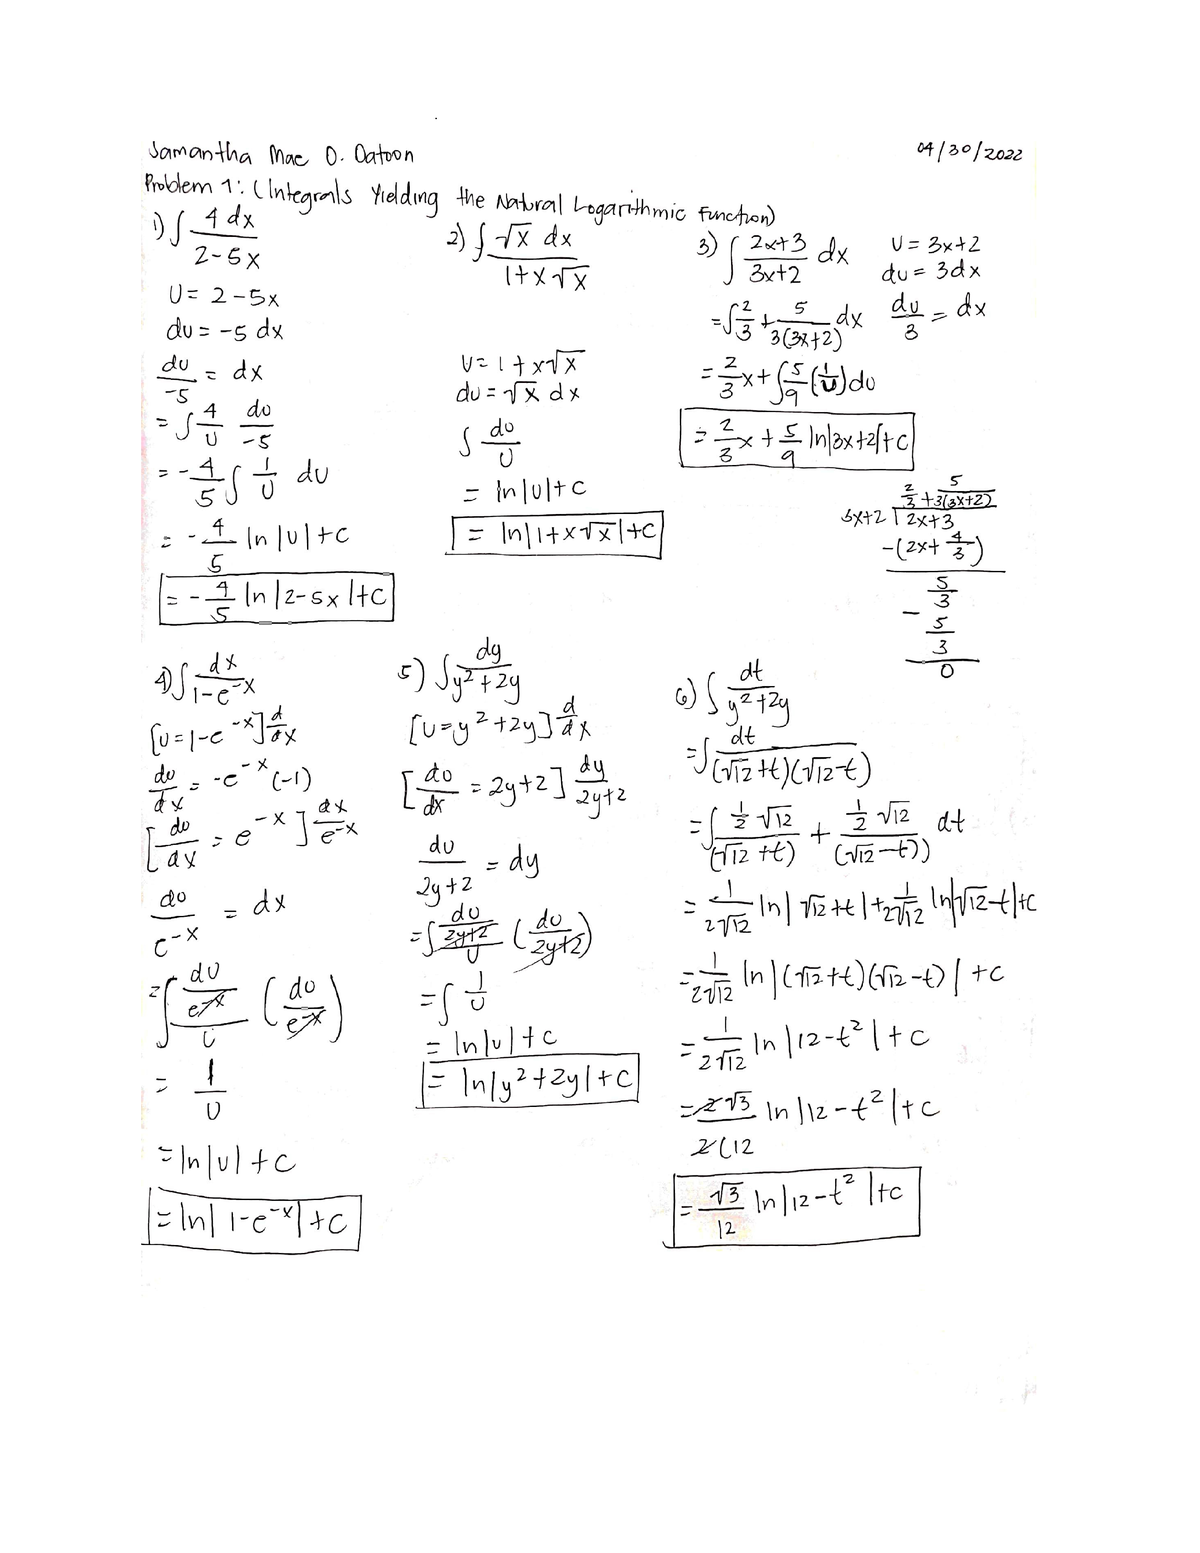 Samantha Mae O. Datoon 04/30/2022
Problem 1: (Integrals Yielding the Natural Logarithmic Function)
1) ∫ 4 dx / 2-5x
U = 2-5x
du = -5 dx
du/-5 = dx
= ∫ 4/U du/-5
= -4/5 ∫ 1/U du
= -4/5 ln |U| + C
= -4/5 ln |2-5x| + C
2) ∫ √x dx / 1+x√x
U = 1+x√x
du = √x dx
∫ du/U
= ln |U| + C
= ln |1+x√x| + C
3) ∫ 2x+3 / 3x+2 dx
U = 3x+2
du = 3dx
du/3 = dx
= ∫ 2/3 + 5/3(3x+2) dx
= 2/3 x + ∫ 5/9 (1/U) du
= 2/3 x + 5/9 ln |3x+2| + C
2/3 + 5/3(3x+2)
3x+2 | 2x+3
-(2x + 4/3)
5/3
- 5/3
0
4) ∫ dx / 1-e^-x
[U = 1-e^-x] d/dx
du/dx = -e^-x (-1)
[du/dx = e^-x] dx/e^-x
du/e^-x = dx
= ∫ du/e^-x / U (du/e^-x)
= 1/U
= ln |U| + C
= ln | 1-e^-x | + C
5) ∫ dy / y²+2y
[U = y²+2y] d/dx
[du/dx = 2y+2] dy/2y+2
du/2y+2 = dy
= ∫ du/2y+2 / U (du/2y+2)
= ∫ 1/U
= ln |U| + C
= ln |y²+2y| + C
6) ∫ dt / y²+2y
= ∫ dt / (√12+t)(√12-t)
= ∫ 1/2 √12 / (√12+t) + 1/2 √12 / (√12-t)) dt
= 1/2√12 ln | √12+t | + 1/2√12 ln |√12-t| + C
= 1/2√12 ln | (√12+t)(√12-t) | + C
= 1/2√12 ln |12-t²| + C
= 2√3 / 2(12 ln |12-t²| + C
= √3/12 ln |12-t²| + C